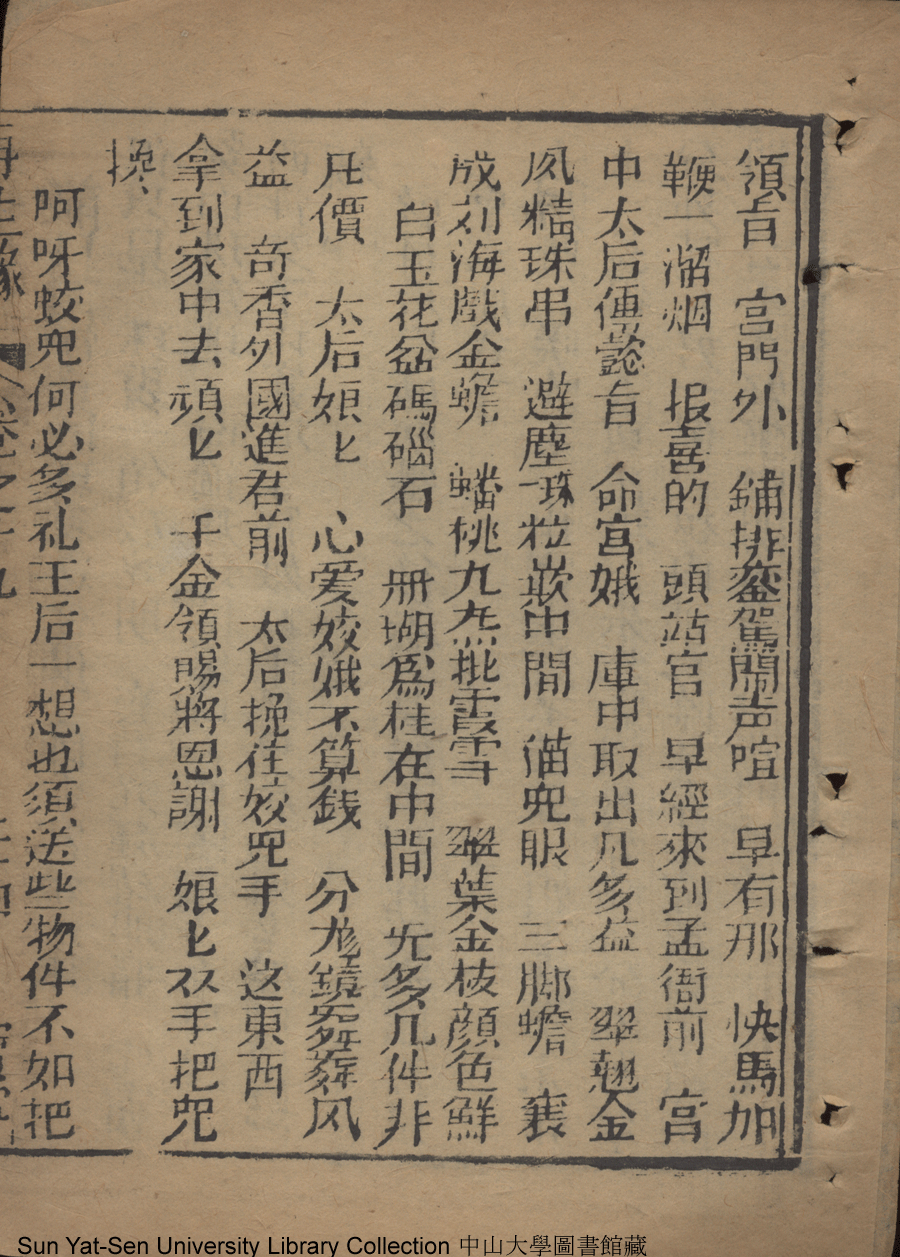 領旨　宮門外　鋪排鑾駕鬧声喧　早有那　快馬加
鞭一溜烟　报喜的　頭站官　早經來到孟衙前　宮
中太后便懿旨　命宮娥　庫中取出凡多益　翠翹金
凤精珠串　避塵珠粒嵌中間　猫兜眼　三脚蟾　裹
成刘海戲金蟾　蟠桃九杰批霞雪　翠葉金枝顏色鮮
白玉花盆碼碯石　册瑚為桂在中間　尤多几件非
凡價　太后娘匕　心爱姣娥不算銭　分鏡舞凤
益　奇香外國進君前　太后挽住姣兜手　这東西
拿到家中去頑匕　千金領賜將恩謝　娘匕双手把兜
挽、
呵呀蛟兜何必多礼王后一想也須送些物件不如把
再生緣　卷之十九